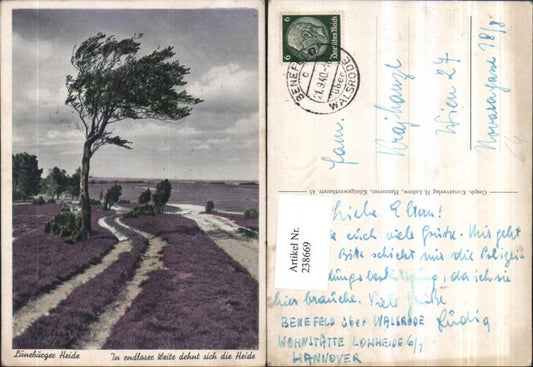 Lüneburger Heide
In endloser Weite dehnt sich die Heide
6
6
Deutsches Reich
BENEFELD
c
.1.9.42.
über
WALSRODE
Fam.
Krajhanzl
Wien 27
Novaragasse 18/8
Graph. Kunstverlag H. Lukow, Hannover, Königswortherstr. 45
Artikel Nr.
238669
Liebe Eltern!
euch viele Grüße. Mir geht
Bitte schickt mir die Polizei-
, da ich sie
hier brauche. Viele Grüße
BENEFELD über WALSRODE Ludig
WOHNSTÄTTE LOHHEIDE 6/7
HANNOVER